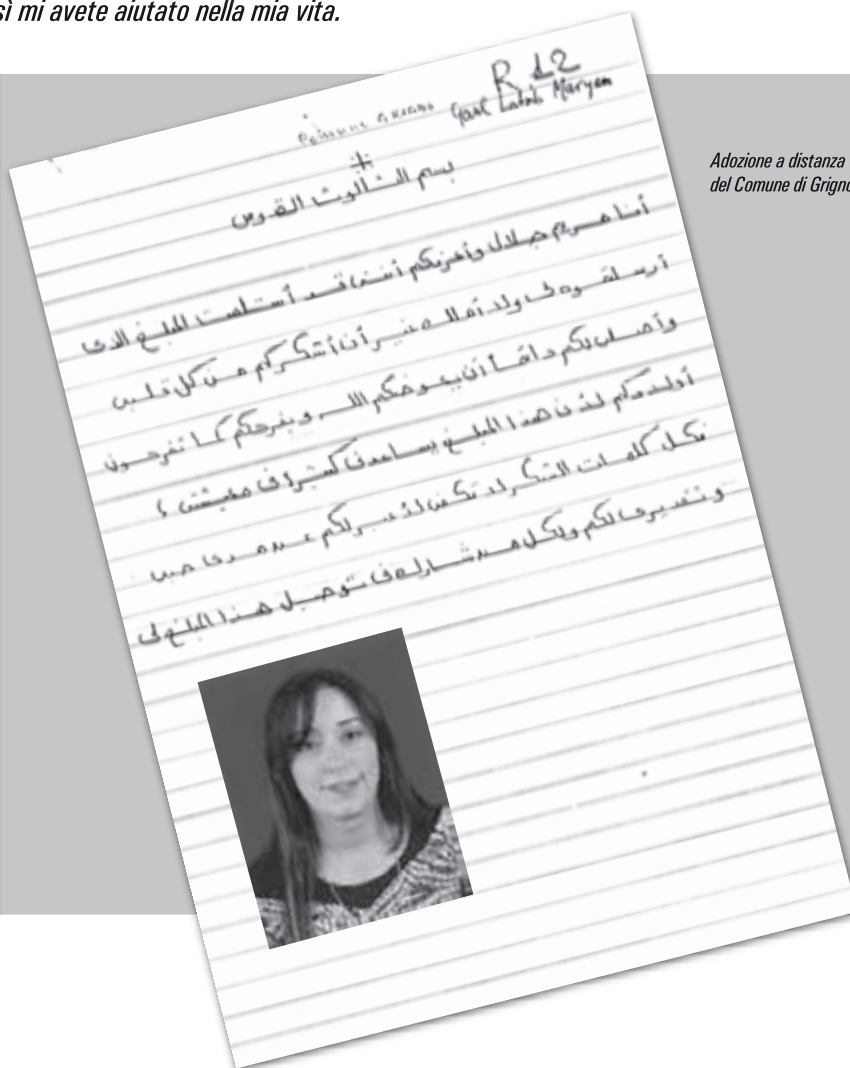 sì mi avete aiutato nella mia vita.
Adozione a distanza
del Comune di Grigno
R 12
Maryem
بسم الثالوث القدوس
أنا مريم جلال وأخبركم أننى قد أستلمت المبلغ الذى
أرسلتموه لى ولد أملك غير أن أشكركم من كل قلبى
وأصلى لكم دائماً أن يعوضكم الله ويفرحكم كما تفرحون
أولادكم لأن هذا المبلغ يساعدنى كثيراً فى معيشتى
فكل كلمات الشكر لا تكفى لأعبر لكم عن مدى حبى
وتقديرى لكم ولكل من شارك فى توصيل هذا المبلغ لى